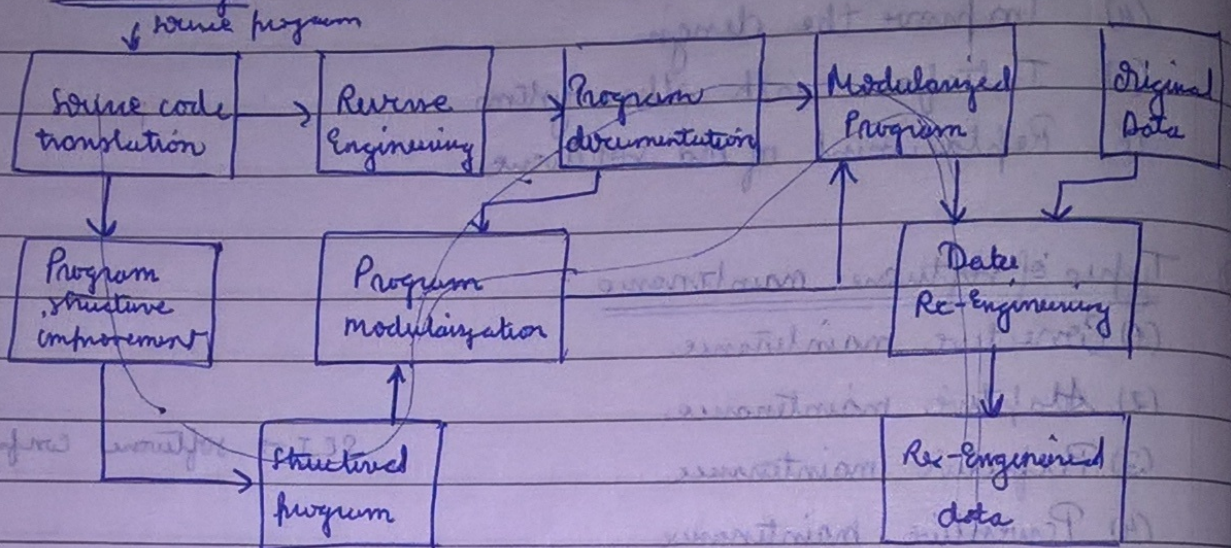 source program
source code
translation
Reverse
Engineering
Program
documentation
Modularized
Program
Original
Data
Program
structure
improvement
Program
modularization
Data
Re-Engineering
structured
program
Re-Engineered
data